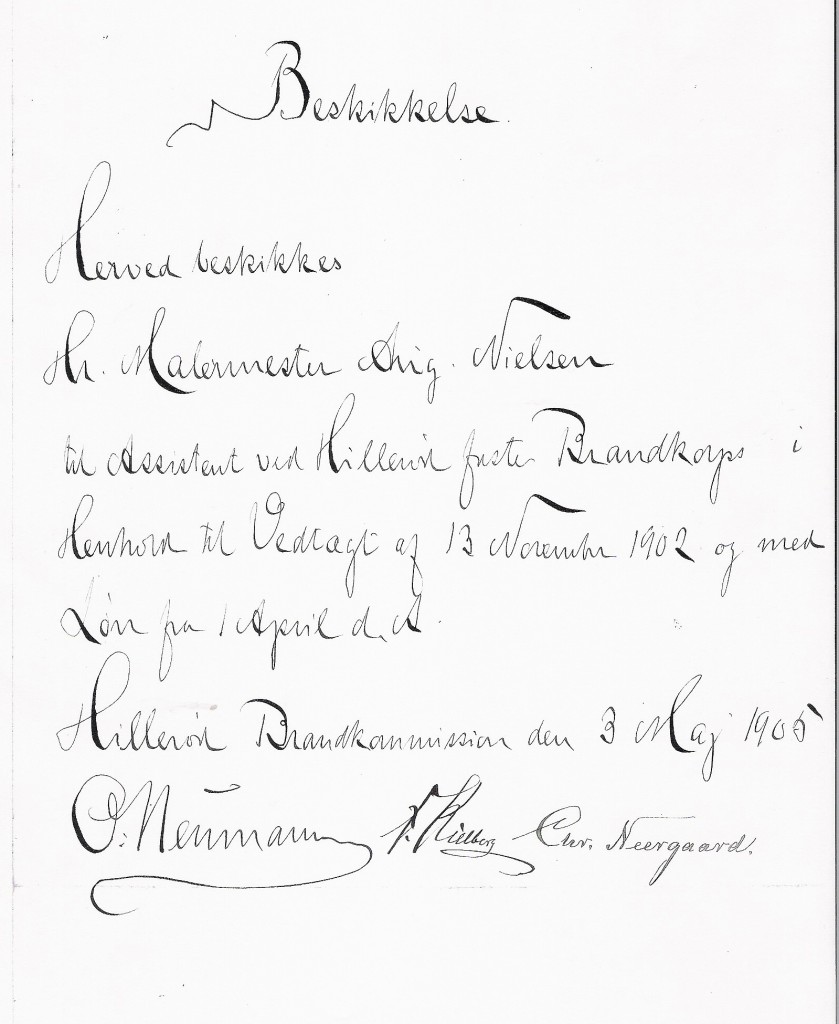 Beskikkelse.
Herved beskikkes
Hr. Malermester Aug. Nielsen
til Assistent ved Hillerød faste Brandkorps i
Henhold til Vedtægt af 13 November 1902 og med
Løn fra 1 April d.A.
Hillerød Brandkommission den 3 Maj 1905
O. Neumann Chr. Neergaard.